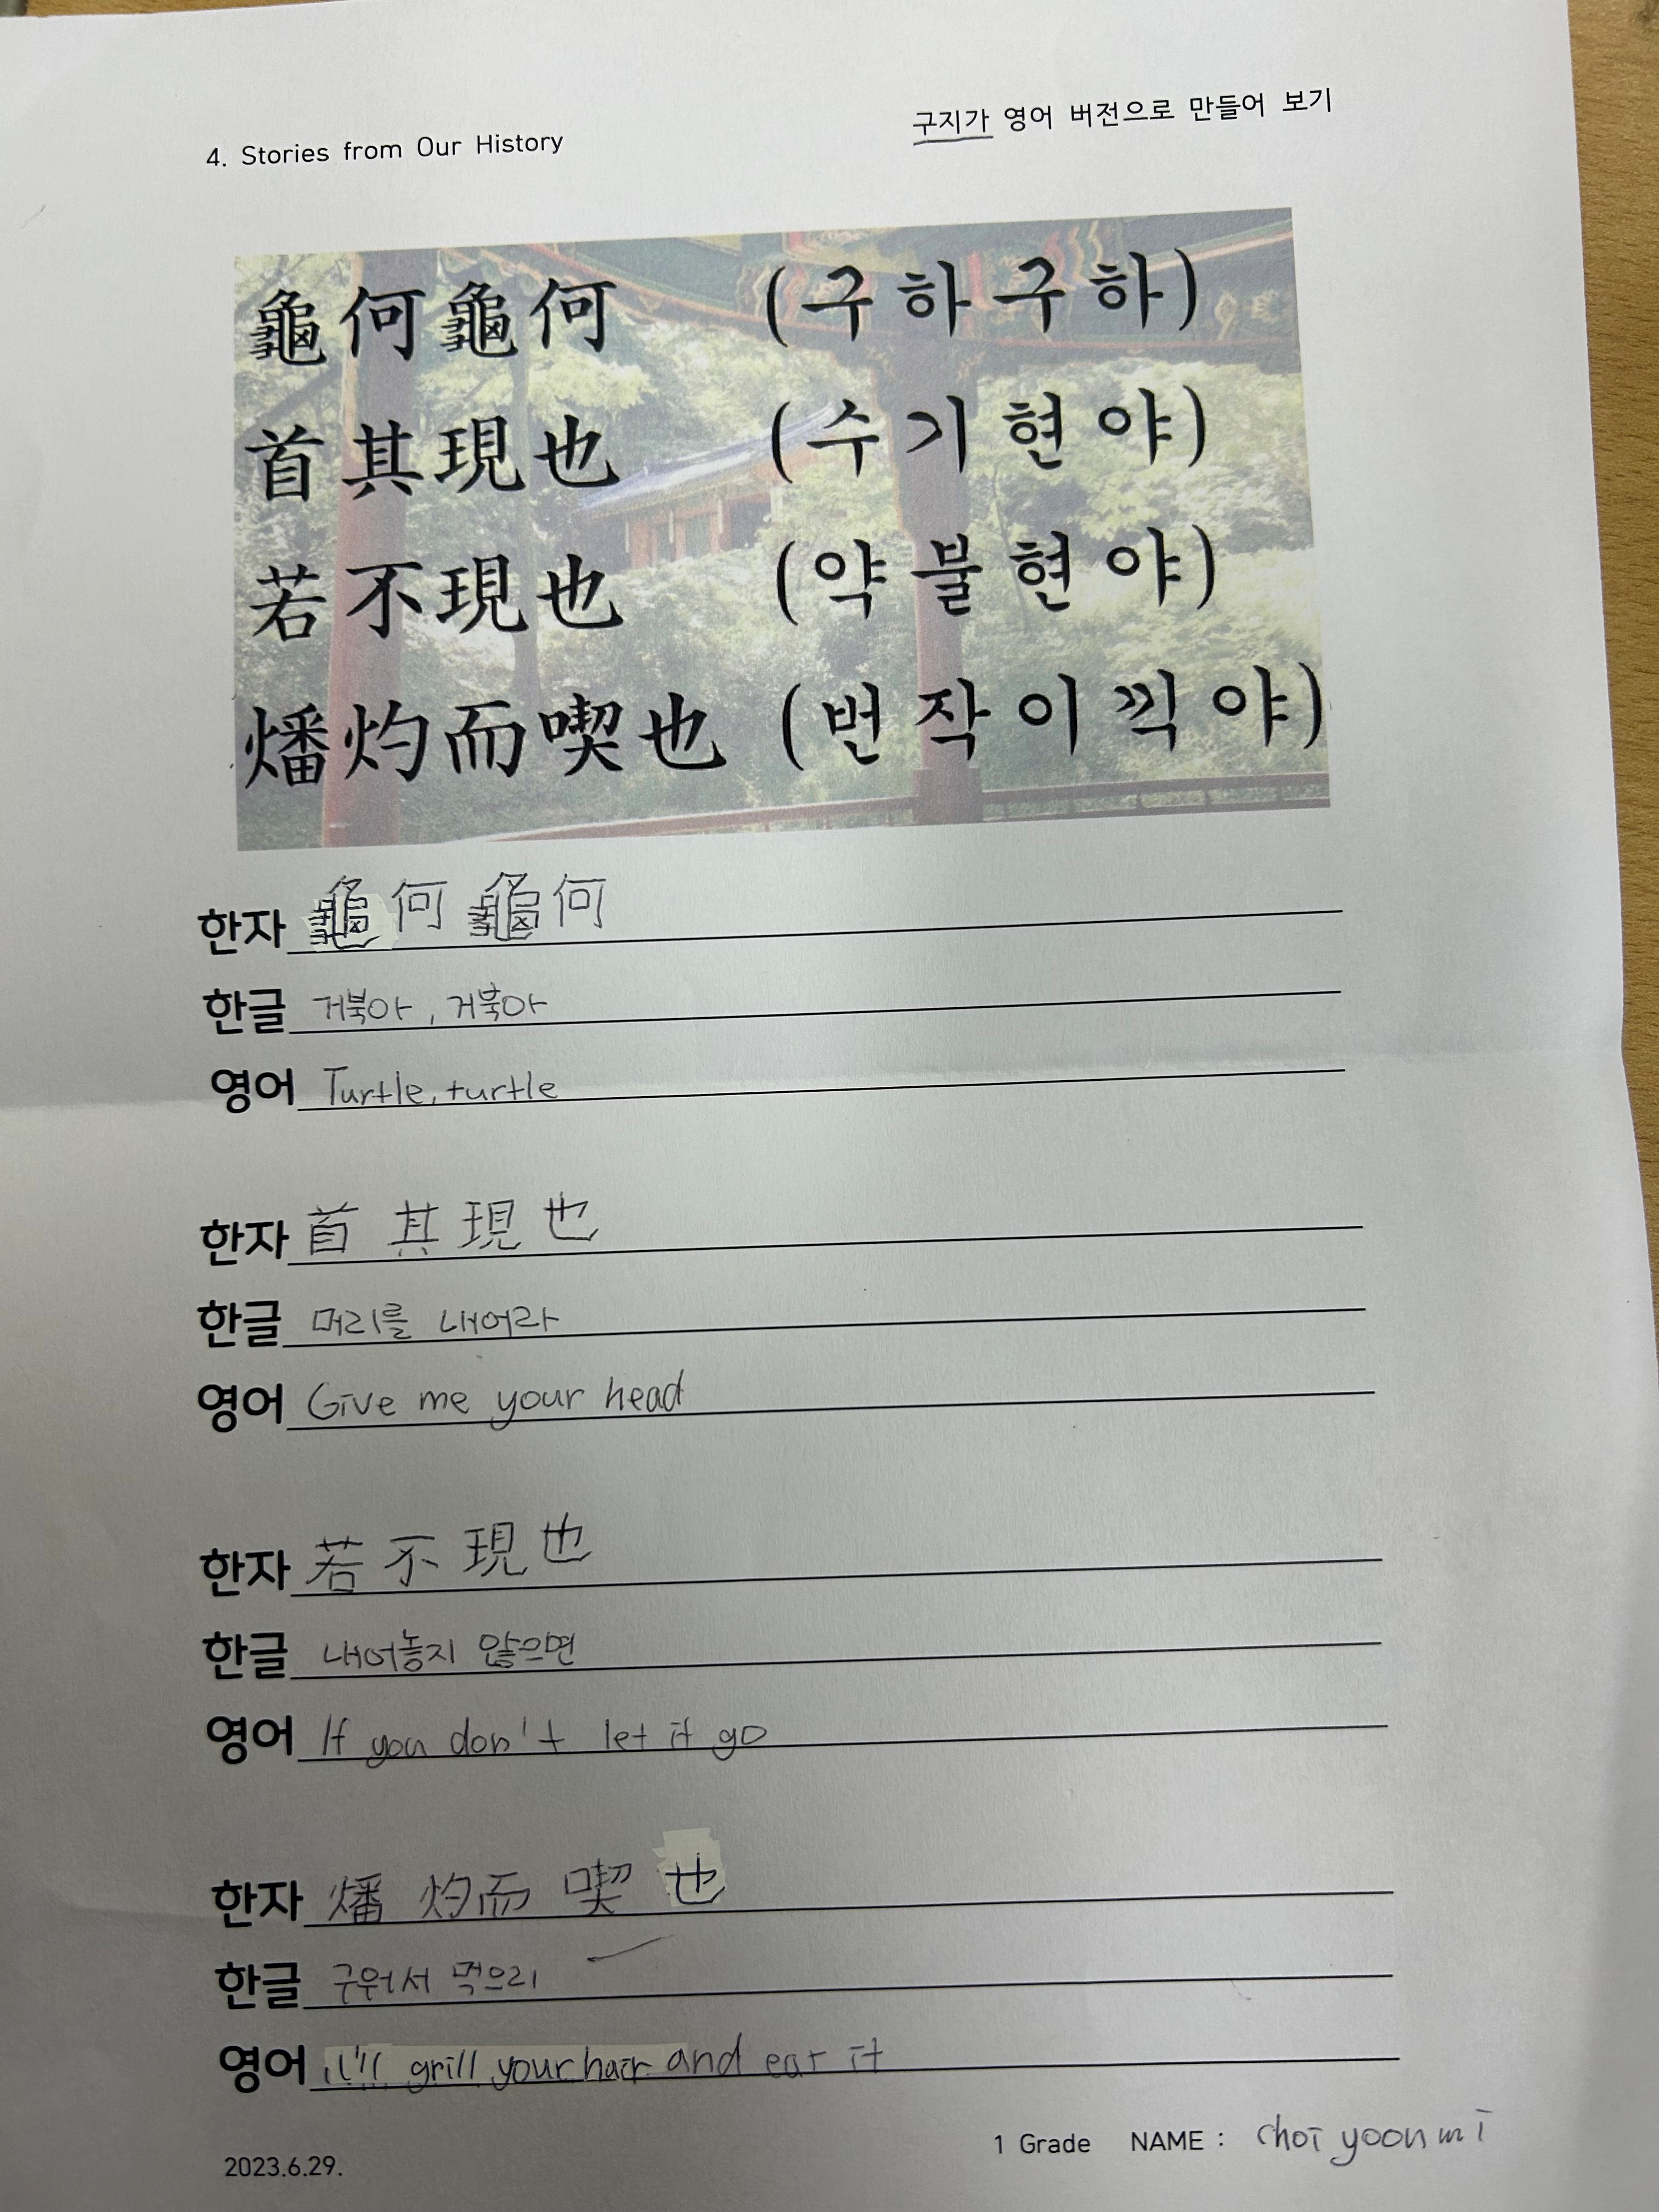 4. Stories from Our History
구지가 영어 버전으로 만들어 보기
龜何龜何 (구하구하)
首其現也 (수기현야)
若不現也 (약불현야)
燔灼而喫也 (번작이끽야)
한자 龜何龜何
한글 거북아, 거북아
영어 Turtle, turtle
한자 首其現也
한글 머리를 내어라
영어 Give me your head
한자 若不現也
한글 내어놓지 않으면
영어 If you don't let it go
한자 燔灼而喫也
한글 구워서 먹으리
영어 i'll grill your hair and eat it
1 Grade NAME : choi yoon mi
2023.6.29.